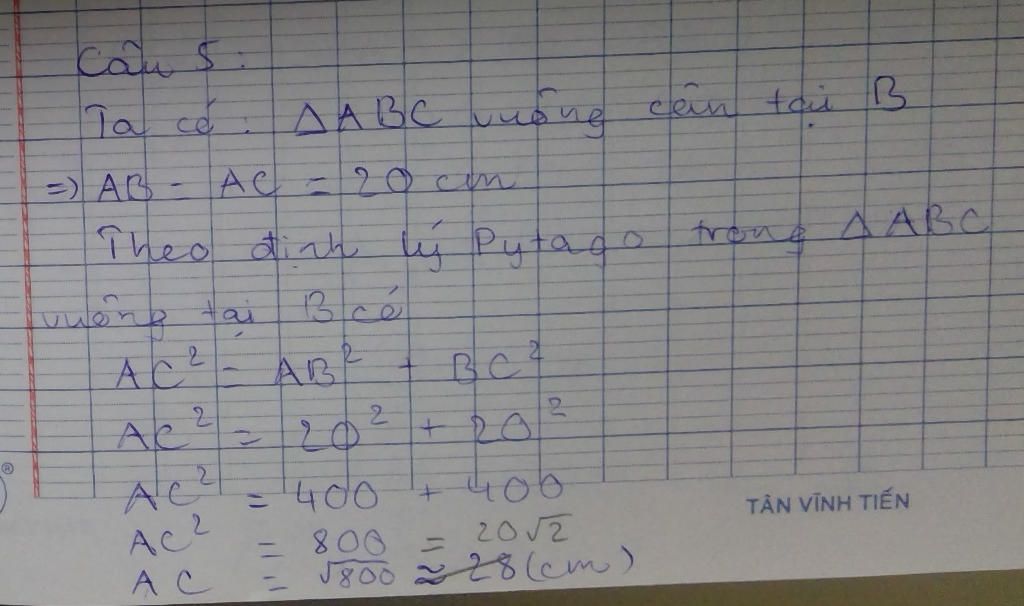 Câu 5:
Ta có: ΔABC vuông cân tại B
=> AB = AC = 20 cm
Theo định lý Pytago trong ΔABC
vuông tại B có
AC² = AB² + BC²
AC² = 20² + 20²
AC² = 400 + 400
TÂN VĨNH TIẾN
AC² = 800 = 20√2
AC = √800 ≈ 28 (cm)